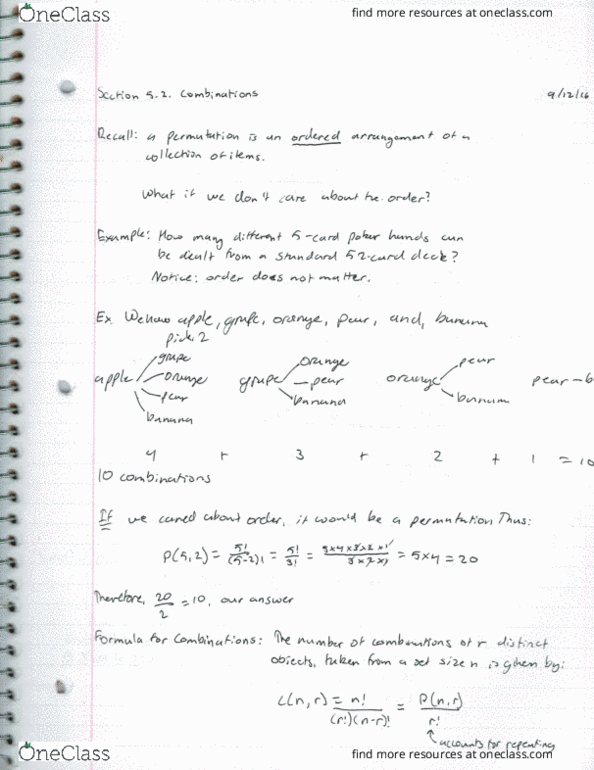 OneClass
find more resources at oneclass.com
Section 5.2. Combinations
9/12/16
Recall: a permutation is an ordered arrangement of a
collection of items.
What if we don't care about the order?
Example: How many different 5-card poker hands can
be dealt from a standard 52-card deck?
Notice: order does not matter.
Ex We have apple, grape, orange, pear, and, banana
pick 2
apple grape orange pear banana
grape orange pear banana
orange pear banana
pear – b
4 + 3 + 2 + 1 = 10
10 combinations
If we cared about order, it would be a permutation Thus:
P(5,2) = 5!/(5-2)! = 5!/3! = 5x4x3x2x1/3x2x1 = 5x4 = 20
Therefore, 20/2 = 10, our answer
Formula for Combinations: The number of combinations of r distinct
objects, taken from a set size n is given by:
C(n,r) = n!/(r!)(n-r)! = P(n,r)/r!
accounts for repeating
OneClass
find more resources at oneclass.com